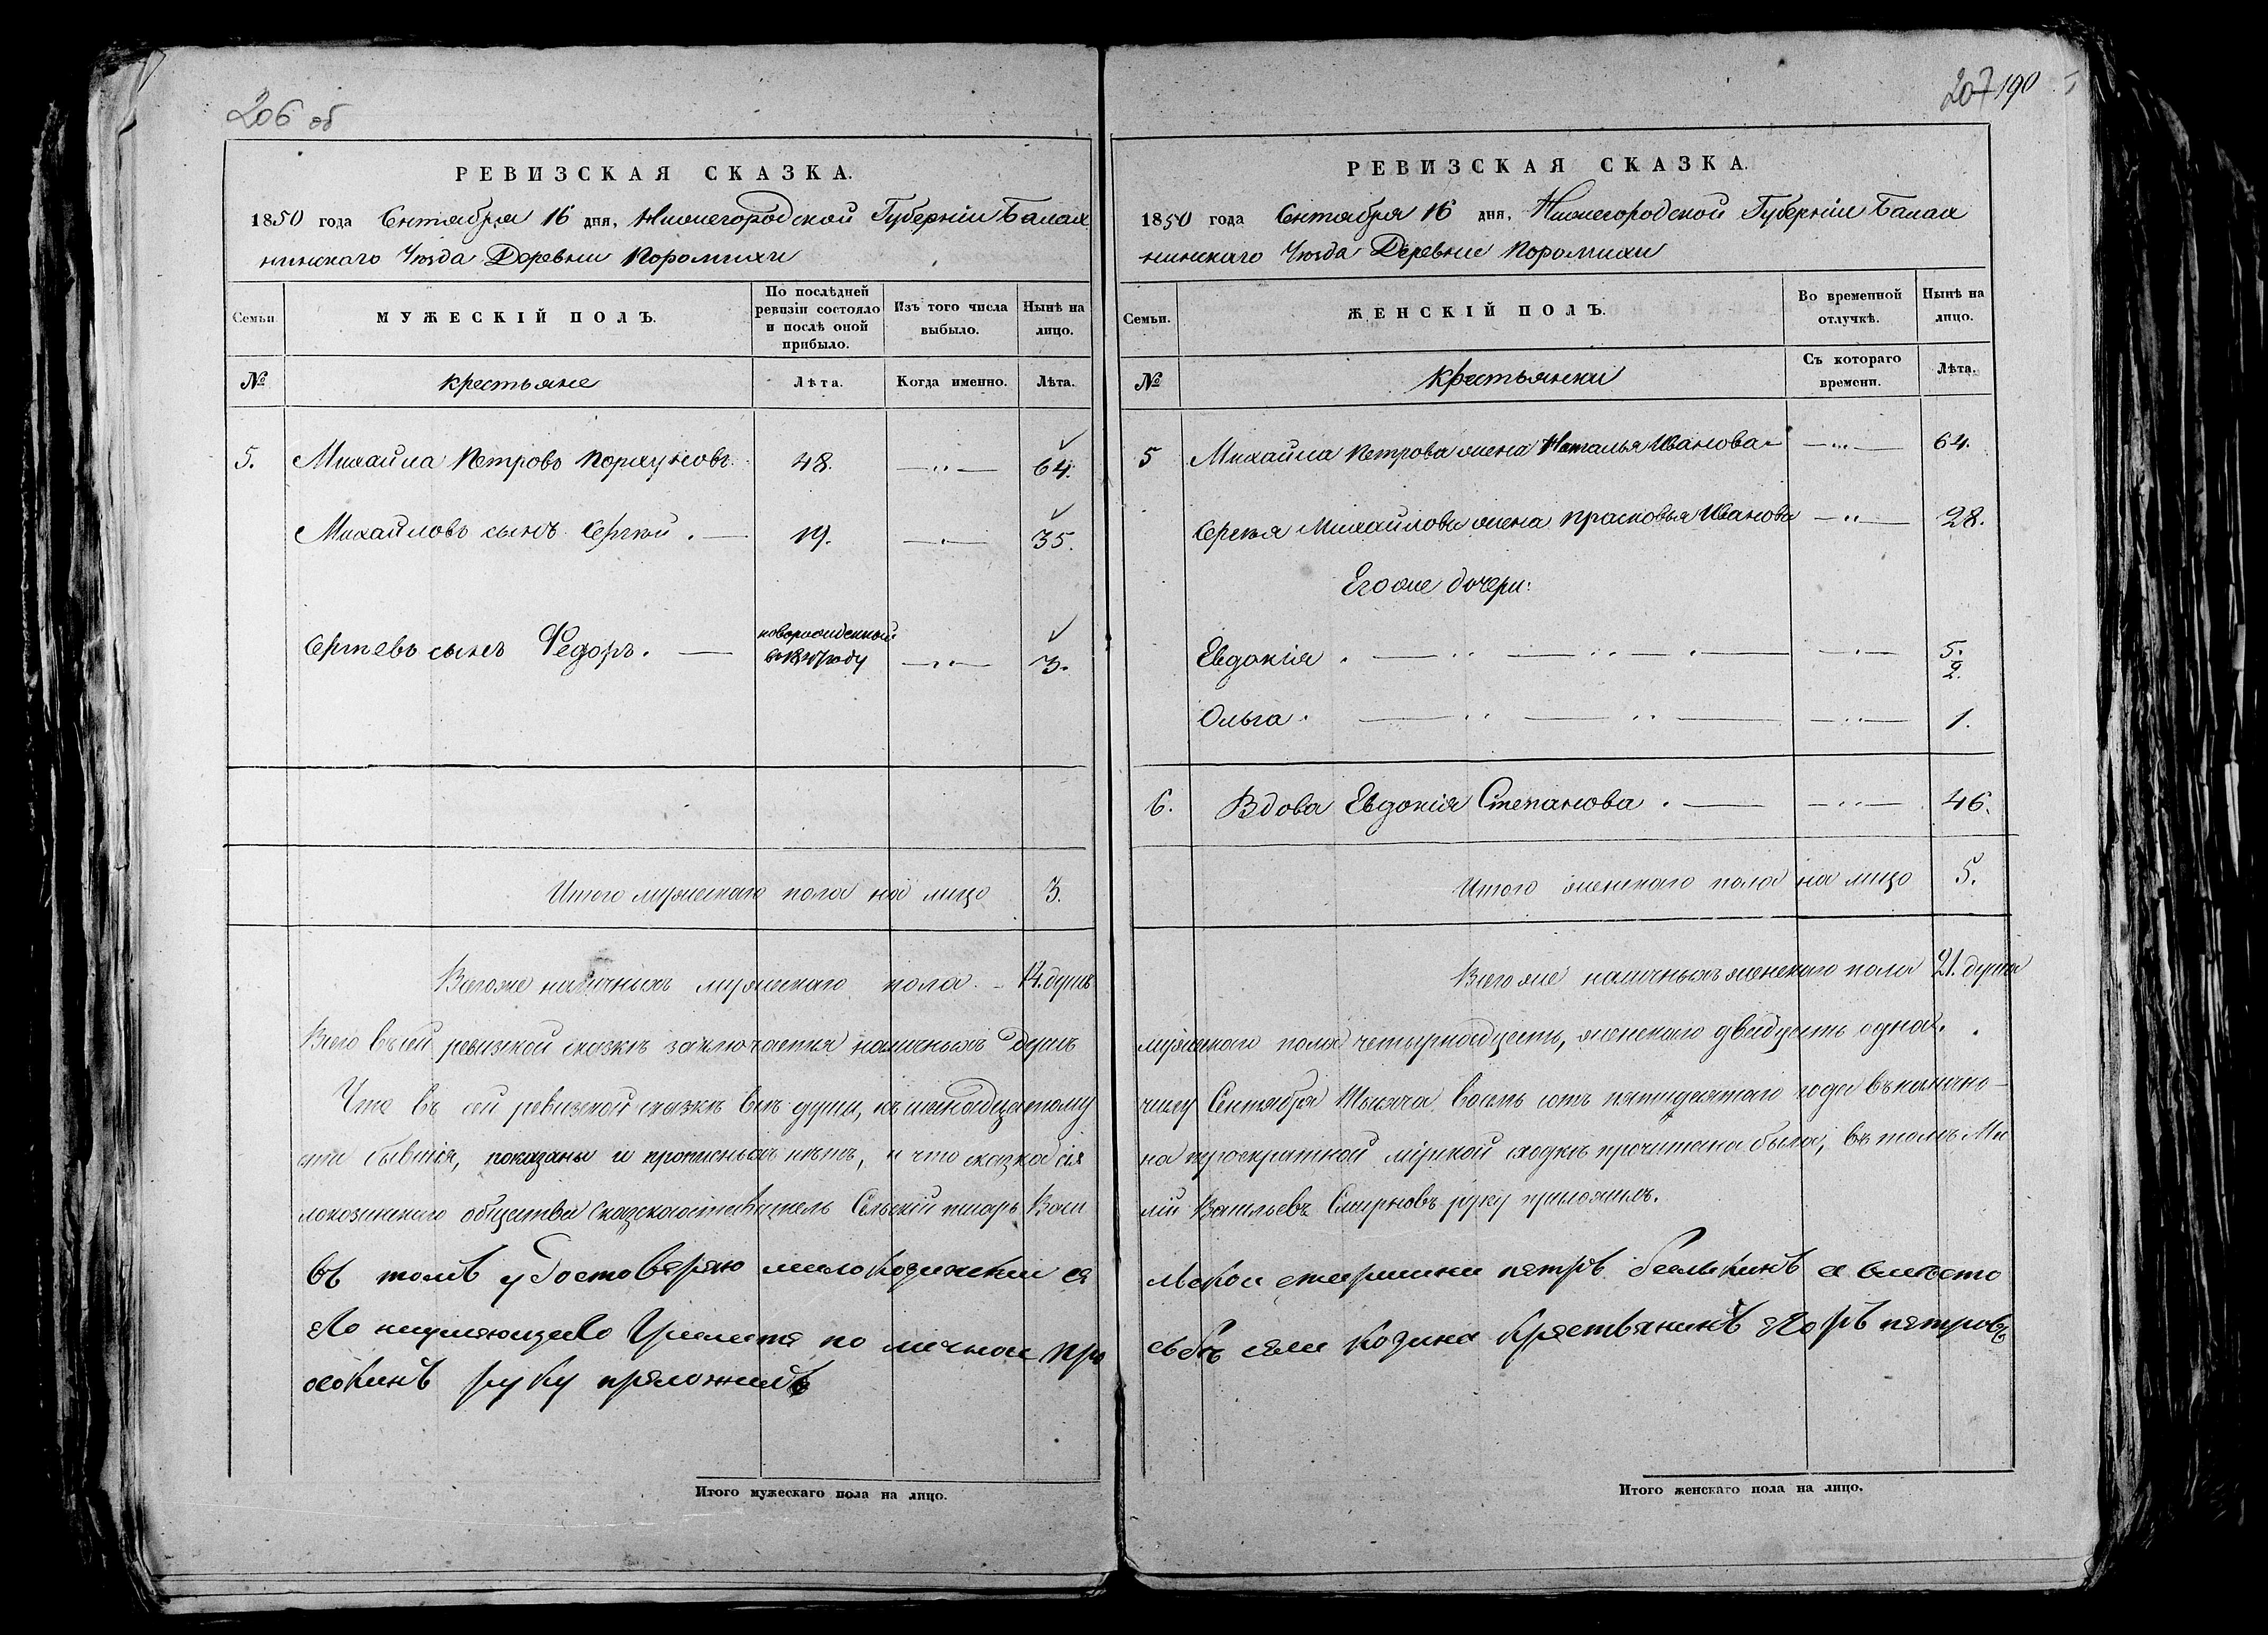 206 об
РЕВИЗСКАЯ СКАЗКА.
1850 года Сентября 16 дня, Нижегородской Губерніи Балах
нинскаго Уѣзда Деревни
Семьи.
МУЖЕСКІЙ ПОЛЪ.
По послѣдней
ревизіи состояло
и послѣ оной
прибыло.
Изъ того числа
выбыло.
Нынѣ на
лицо.
№
крестьяне
Лѣта.
Когда именно.
Лѣта.
5. Михайла Петровъ 48. 64.
Михайловъ сынъ Сергѣй. 19. 35.
новорожденный
Сергѣевъ сынъ Федоръ. в 1847 году 3.
Итого мужескаго пола на лицо 3.
Всего же наличныхъ мужескаго пола 14. душъ
Всего въ сей ревизской сказкѣ заключается наличныхъ душъ
Что въ сей ревизской сказкѣ всѣ души, къ шенадцатому
сти бывшія, показаны и прописныхъ нѣтъ, и что сказка сія
локозинскаго общества Сказкосоставитель Сельскій писарь Васи
Въ томъ удостоверяю малокозински се
его неумеющево Грамате по личнои про
руку преложилъ
Итого мужескаго пола на лицо.
207 190
РЕВИЗСКАЯ СКАЗКА.
1850 года Сентября 16 дня, Нижегородской Губерніи Балах
нинскаго Уѣзда Деревни
Семьи.
ЖЕНСКІЙ ПОЛЪ.
Во временной
отлучкѣ.
Нынѣ на
лицо.
№
крестьянки
Съ котораго
времени.
Лѣта.
5 Михайла Петрова жена Наталья Иванова 64.
Сергѣя Михайлова жена Прасковья Иванова 28.
Его же дочери:
Евдокія. 5.
2.
Ольга. 1.
6. Вдова Евдокія Степанова. 46.
Итого женскаго пола на лицо 5.
Всего же наличныхъ женскаго пола 21. душа
мужскаго пола четырнадцать, женскаго двадцать одна.
числу Сентября Тысяча восемь сотъ пятидесятаго года въ налично-
на троекратной мірской сходкѣ прочитана была, въ томъ Ма
лій Васильевъ Смирновъ руку приложилъ.
льскои старшина петръ а вместо
села Козина Крестьянинъ Егоръ петровъ
Итого женскаго пола на лицо.